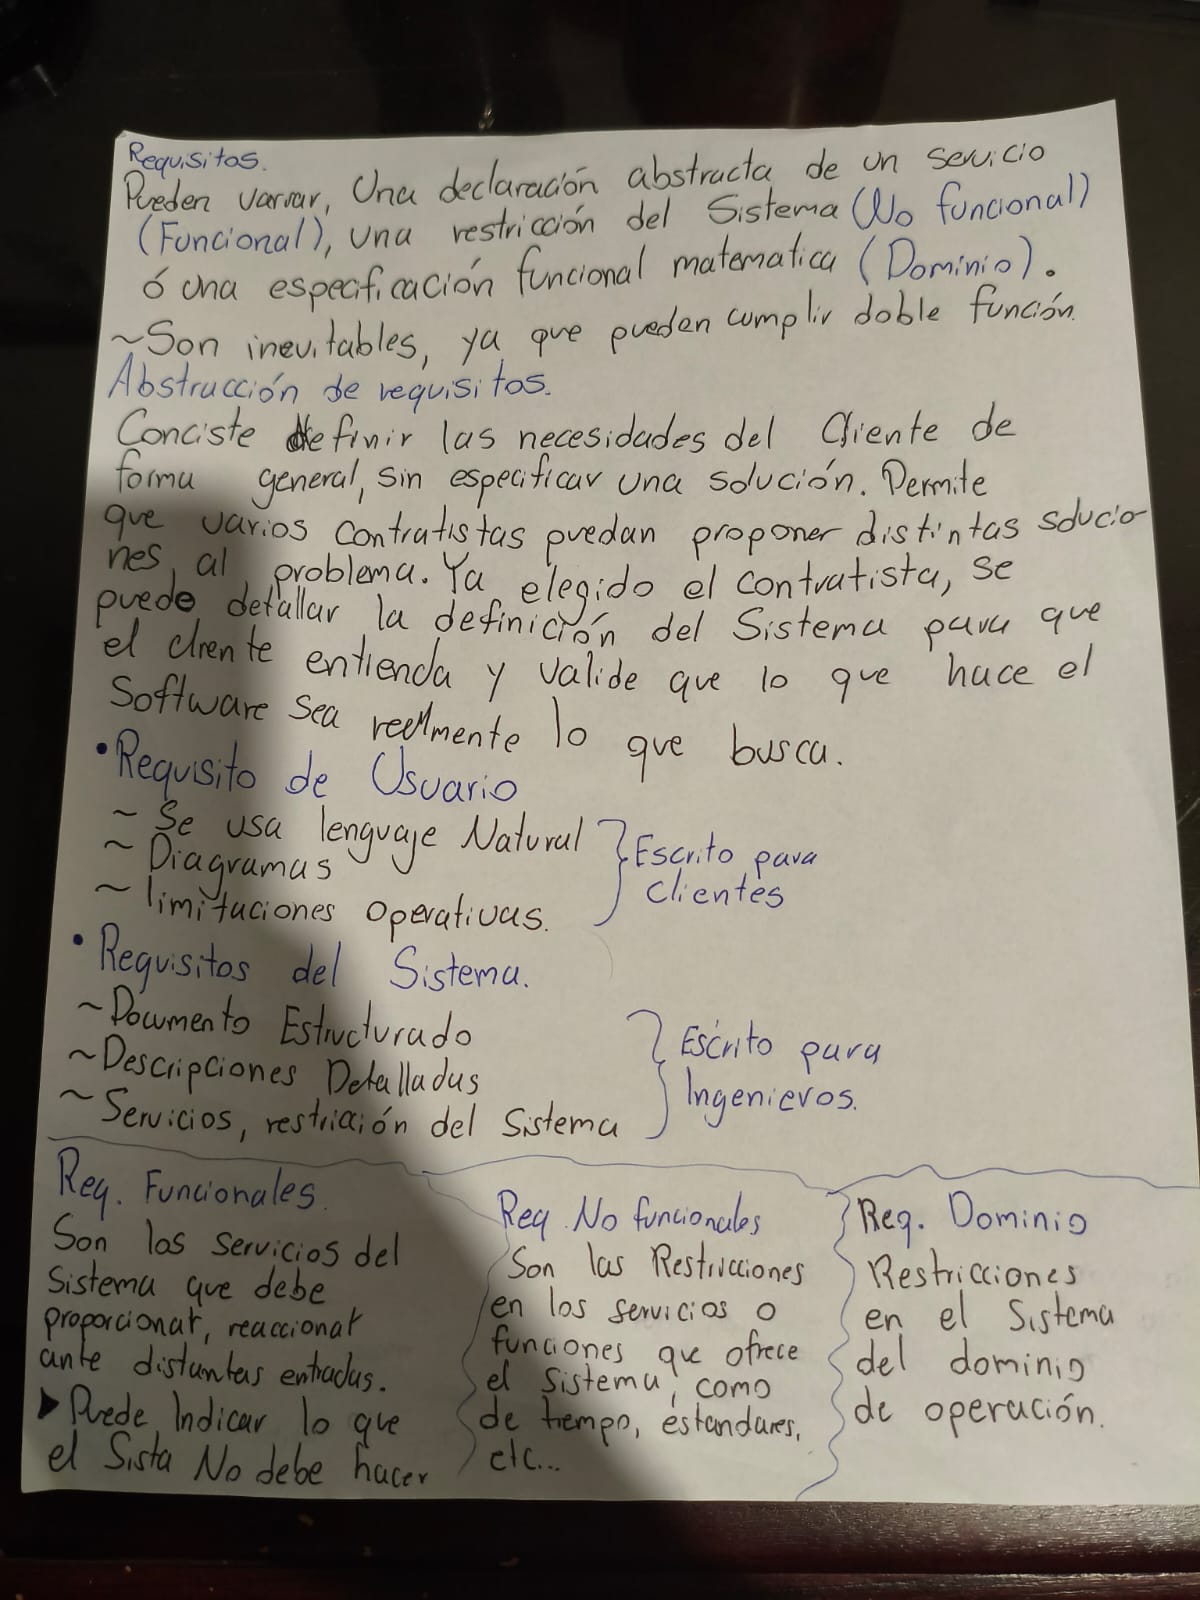 Requisitos.
Pueden variar, Una declaración abstracta de un servicio
(Funcional), una restricción del Sistema (No funcional)
ó una especificación funcional matematica (Dominio).
~Son inevitables, ya que pueden cumplir doble función.
Abstracción de requisitos.
Conciste definir las necesidades del Cliente de
forma general, sin especificar una solución. Permite
que varios contratistas puedan proponer distintas solucio
nes al problema. Ya elegido el contratista, se
puede detallar la definición del Sistema para que
el cliente entienda y valide que lo que hace el
Software sea realmente lo que busca.
• Requisito de Usuario
~ Se usa lenguaje Natural
~ Diagramas
~ limitaciones operativas.
} Escrito para
Clientes
• Requisitos del Sistema.
~Documento Estructurado
~Descripciones Detalladas
~Servicios, restricción del Sistema
} Escrito para
Ingenieros.
Req. Funcionales.
Son los servicios del
Sistema que debe
proporcionar, reaccionar
ante distintas entradas.
▶ Puede Indicar lo que
el Sista No debe hacer
Req. No funcionales
Son las Restricciones
en los servicios o
funciones que ofrece
el Sistema, como
de tiempo, éstandares,
etc...
Req. Dominio
Restricciones
en el Sistema
del dominio
de operación.